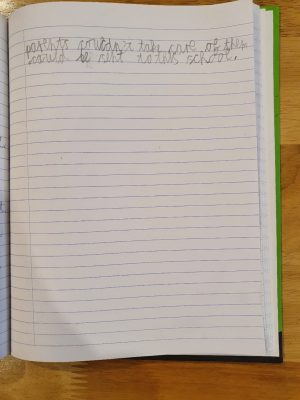 parents couldn't take care of them
would be sent to this school.